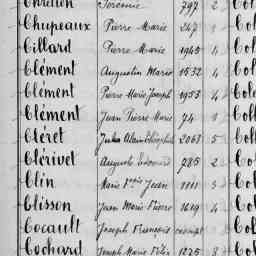 Chrétien Jérémie 797 2 Col
Chupeaux Pierre Marie 247 1 Col
Cillard Pierre Marie 1945 4 Col
Clément Augustin Marie 1532 4 Col
Clément Pierre Marie Joseph 1953 4 Col
Clément Jean Pierre Marie 74 1 Col
Cléret Jules 2068 5 Col
Clérivet Auguste Edouard 785 2 Col
Clin Marie Jean 1111 Col
Clisson Jean Marie Pierre 1649 4 Col
Cocault Joseph François exempt Col
Cochard Joseph Marie Félix 1225 8 Col